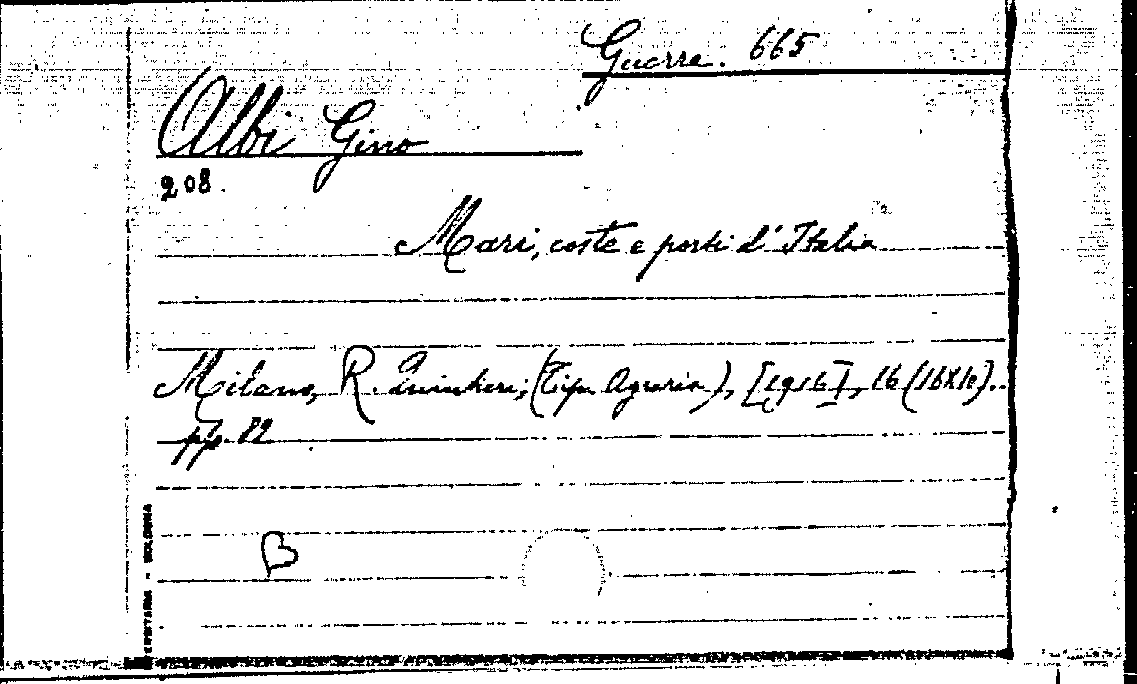 Guerra. 665
Albi Gino
208.
Mari, coste e porti d'Italia
Milano, R. Quintieri, (Tip. Agraria), [1916], 16 (16X10).
pp. 82
B
BOLOGNA